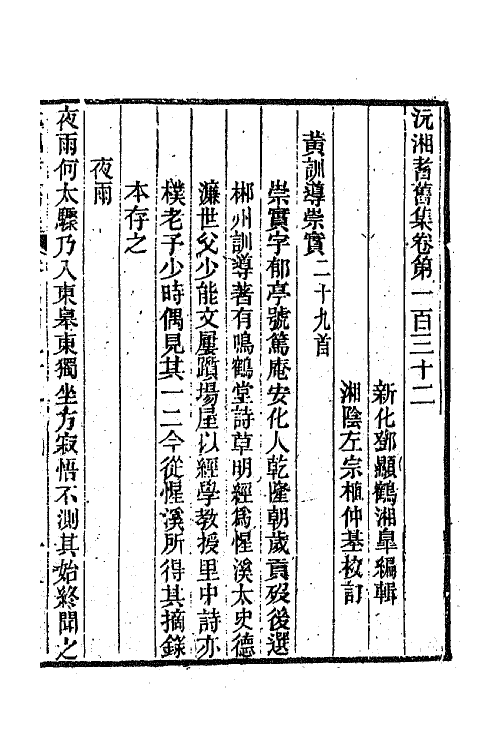 沅湘耆舊集卷第一百三十二
新化鄧顯鶴湘臯編輯
湘陰左宗植仲基校訂
黃訓導崇實二十九首
崇實字郁亭號篤庵安化人乾隆朝歲貢歿後選
郴州訓導著有鳴鶴堂詩草明經爲惺溪太史德
濂世父少能文屢躓場屋以經學教授里中詩亦
樸老予少時偶見其一二今從惺溪所得其摘錄
本存之
夜雨
夜雨何太驟乃入東皋東獨坐方寂悟不測其始終聞之